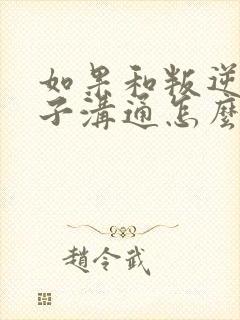 如果和叛逆
子溝通怎麼
趙令武